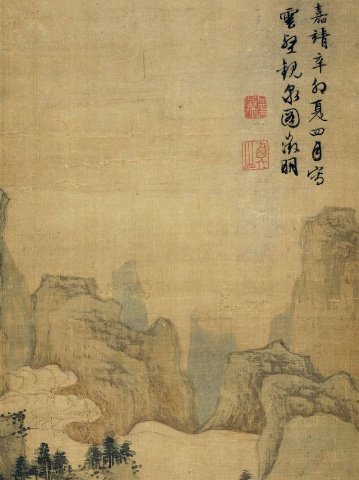 嘉靖辛卯夏四月寫
雲壑観泉圖徵明